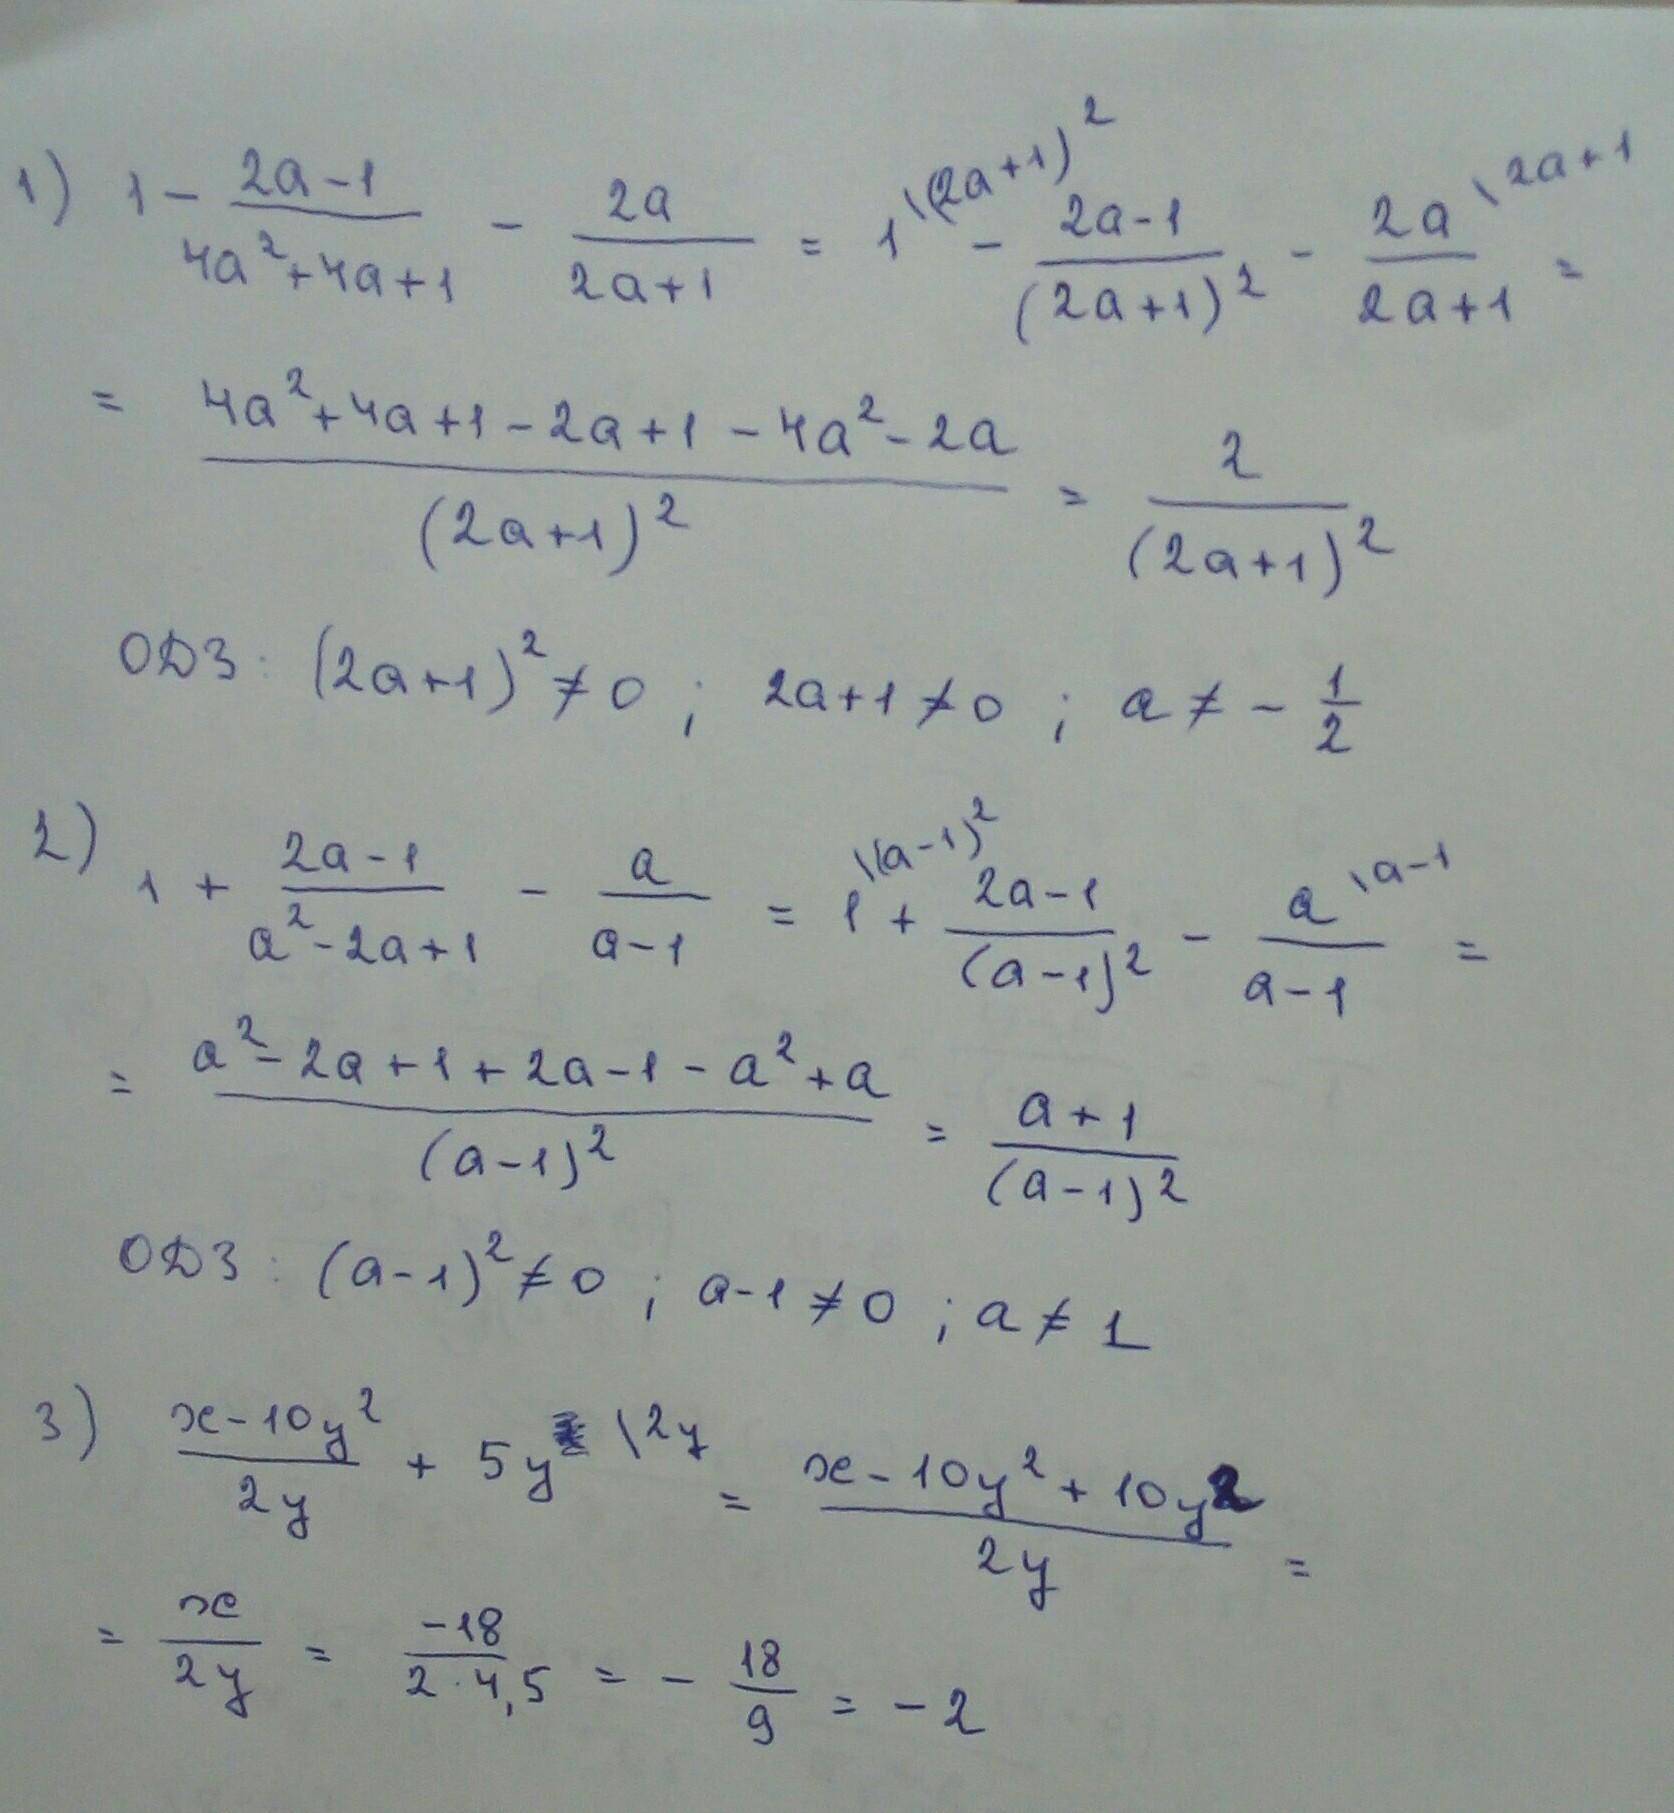 1) 1 - (2a-1)/(4a²+4a+1) - 2a/(2a+1) = 1\(2a+1)² - (2a-1)/(2a+1)² - 2a\2a+1/(2a+1) =
= (4a²+4a+1-2a+1-4a²-2a)/(2a+1)² = 2/(2a+1)²
ОДЗ: (2a+1)² ≠ 0 ; 2a+1 ≠ 0 ; a ≠ - 1/2
2) 1 + (2a-1)/(a²-2a+1) - a/(a-1) = 1\(a-1)² + (2a-1)/(a-1)² - a\a-1/(a-1) =
= (a²-2a+1+2a-1-a²+a)/(a-1)² = (a+1)/(a-1)²
ОДЗ: (a-1)² ≠ 0 ; a-1 ≠ 0 ; a ≠ 1
3) (x-10y²)/2y + 5y \2y = (x-10y²+10y2)/2y =
= x/2y = -18/(2·4,5) = - 18/9 = -2